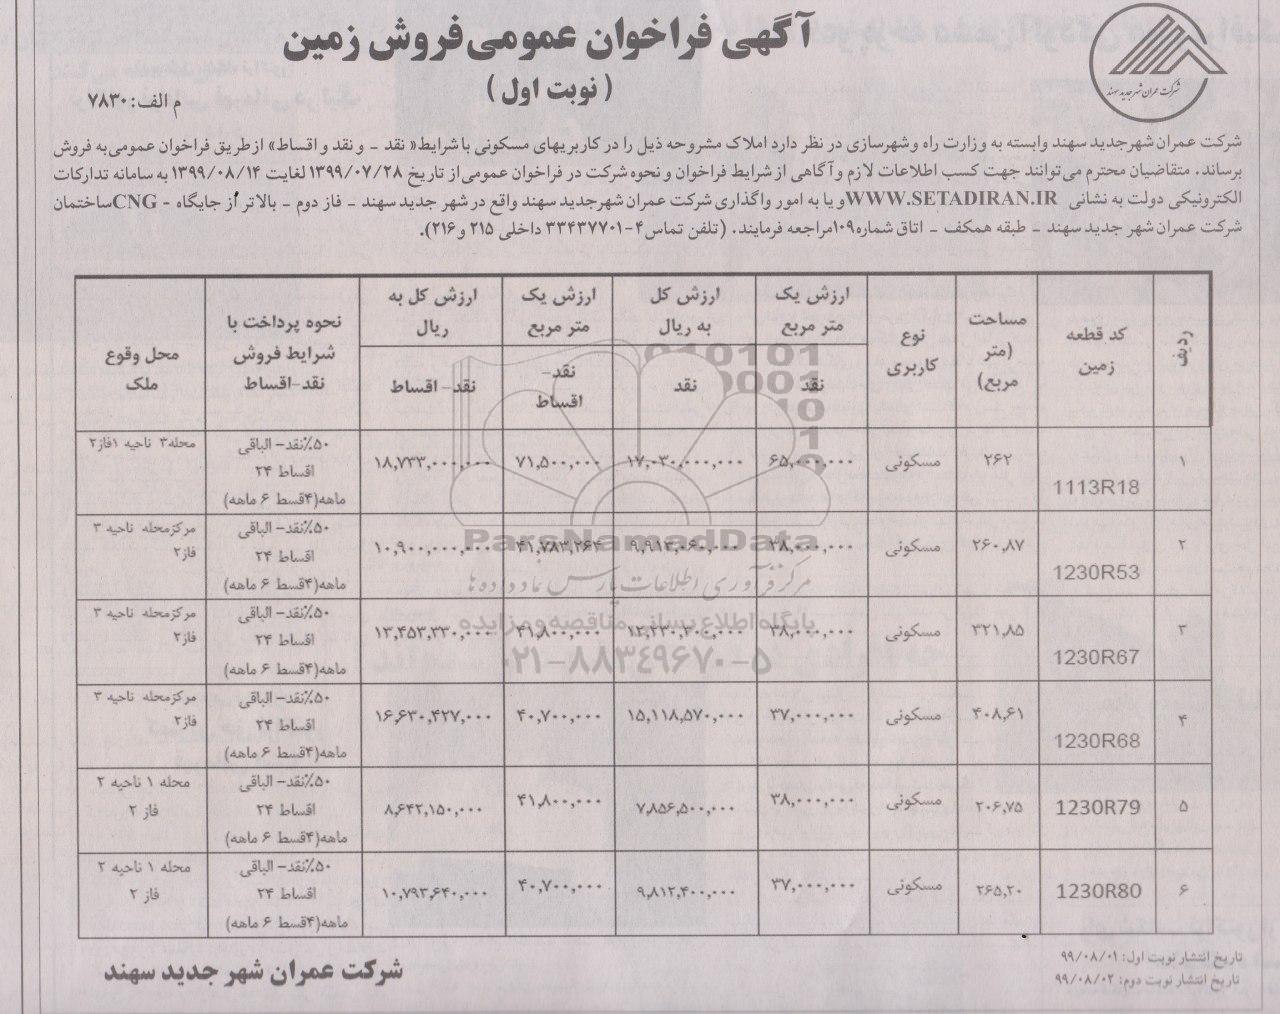 آگهی فراخوان عمومی فروش زمین
( نوبت اول )
م الف: ۷۸۳۰
شرکت عمران شهر جدید سهند
شرکت عمران شهرجدید سهند وابسته به وزارت راه وشهرسازی در نظر دارد املاک مشروحه ذیل را در کاربریهای مسکونی با شرایط« نقد - و نقد و اقساط» ازطریق فراخوان عمومی‌به فروش
برساند. متقاضیان محترم می‌توانند جهت کسب اطلاعات لازم وآگاهی از شرایط فراخوان و نحوه شرکت در فراخوان عمومی‌از تاریخ ۱۳۹۹/۰۷/۲۸ لغایت ۱۳۹۹/۰۸/۱۴ به سامانه تدارکات
الکترونیکی دولت به نشانی WWW.SETADIRAN.IR و یا به امور واگذاری شرکت عمران شهرجدید سهند واقع در شهر جدید سهند - فاز دوم - بالاتر از جایگاه CNG - ساختمان
شرکت عمران شهر جدید سهند - طبقه همکف - اتاق شماره۱۰۹مراجعه فرمایند. (تلفن تماس۴-۳۳۴۳۷۷۰۱ داخلی ۲۱۵ و۲۱۶).
ردیف | کد قطعه زمین | مساحت (متر مربع) | نوع کاربری | ارزش یک متر مربع نقد | ارزش کل به ریال نقد | ارزش یک متر مربع نقد- اقساط | ارزش کل به ریال نقد- اقساط | نحوه پرداخت با شرایط فروش نقد-اقساط | محل وقوع ملک
۱ | 1113R18 | ۲۶۲ | مسکونی | ۶۵,۰۰۰,۰۰۰ | ۱۷,۰۳۰,۰۰۰,۰۰۰ | ۷۱,۵۰۰,۰۰۰ | ۱۸,۷۳۳,۰۰۰,۰۰۰ | ۵۰٪نقد- الباقی اقساط ۲۴ ماهه(۴قسط ۶ ماهه) | محله۳ ناحیه ۱فاز۲
۲ | 1230R53 | ۲۶۰,۸۷ | مسکونی | ۳۸,۰۰۰,۰۰۰ | ۹,۹۱۳,۰۶۰,۰۰۰ | ۴۱,۷۸۳,۲۶۴ | ۱۰,۹۰۰,۰۰۰,۰۰۰ | ۵۰٪نقد- الباقی اقساط ۲۴ ماهه(۴قسط ۶ ماهه) | مرکزمحله ناحیه ۳ فاز۲
۳ | 1230R67 | ۳۲۱,۸۵ | مسکونی | ۳۸,۰۰۰,۰۰۰ | ۱۲,۲۳۰,۳۰۰,۰۰۰ | ۴۱,۸۰۰,۰۰۰ | ۱۳,۴۵۳,۳۳۰,۰۰۰ | ۵۰٪نقد- الباقی اقساط ۲۴ ماهه(۴قسط ۶ ماهه) | مرکزمحله ناحیه ۳ فاز۲
۴ | 1230R68 | ۴۰۸,۶۱ | مسکونی | ۳۷,۰۰۰,۰۰۰ | ۱۵,۱۱۸,۵۷۰,۰۰۰ | ۴۰,۷۰۰,۰۰۰ | ۱۶,۶۳۰,۴۲۷,۰۰۰ | ۵۰٪نقد- الباقی اقساط ۲۴ ماهه(۴قسط ۶ ماهه) | مرکزمحله ناحیه ۳ فاز۲
۵ | 1230R79 | ۲۰۶,۷۵ | مسکونی | ۳۸,۰۰۰,۰۰۰ | ۷,۸۵۶,۵۰۰,۰۰۰ | ۴۱,۸۰۰,۰۰۰ | ۸,۶۴۲,۱۵۰,۰۰۰ | ۵۰٪نقد- الباقی اقساط ۲۴ ماهه(۴قسط ۶ ماهه) | محله ۱ ناحیه ۲ فاز ۲
۶ | 1230R80 | ۲۶۵,۲۰ | مسکونی | ۳۷,۰۰۰,۰۰۰ | ۹,۸۱۲,۴۰۰,۰۰۰ | ۴۰,۷۰۰,۰۰۰ | ۱۰,۷۹۳,۶۴۰,۰۰۰ | ۵۰٪نقد- الباقی اقساط ۲۴ ماهه(۴قسط ۶ ماهه) | محله ۱ ناحیه ۲ فاز ۲
ParsNamadData
مرکز فرآوری اطلاعات پارس نماد داده ها
پایگاه اطلاع رسانی مناقصه و مزایده
۰۲۱-۸۸۳۴۹۶۷۰-۵
تاریخ انتشار نوبت اول: ۹۹/۰۸/۰۱
تاریخ انتشار نوبت دوم: ۹۹/۰۸/۰۲
شرکت عمران شهر جدید سهند